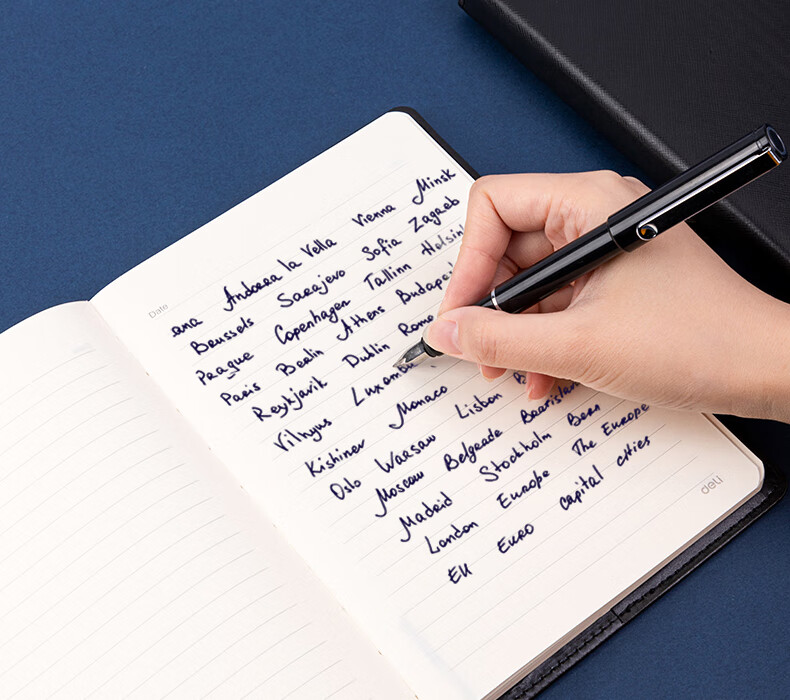 Date
ana Andorra la Vella Vienna Minsk
Brussels Sarajevo Sofia Zagreb
Prague Copenhagen Tallinn Helsin
Paris Berlin Athens Budapes
Reykjavik Dublin Rome
Vilnyus Luxemb
Kishinev Monaco
Oslo Warsaw Lisbon B
Moscow Belgrade
Madrid Stockholm Bern
London Europe The Europe
EU Euro capital cities
deli